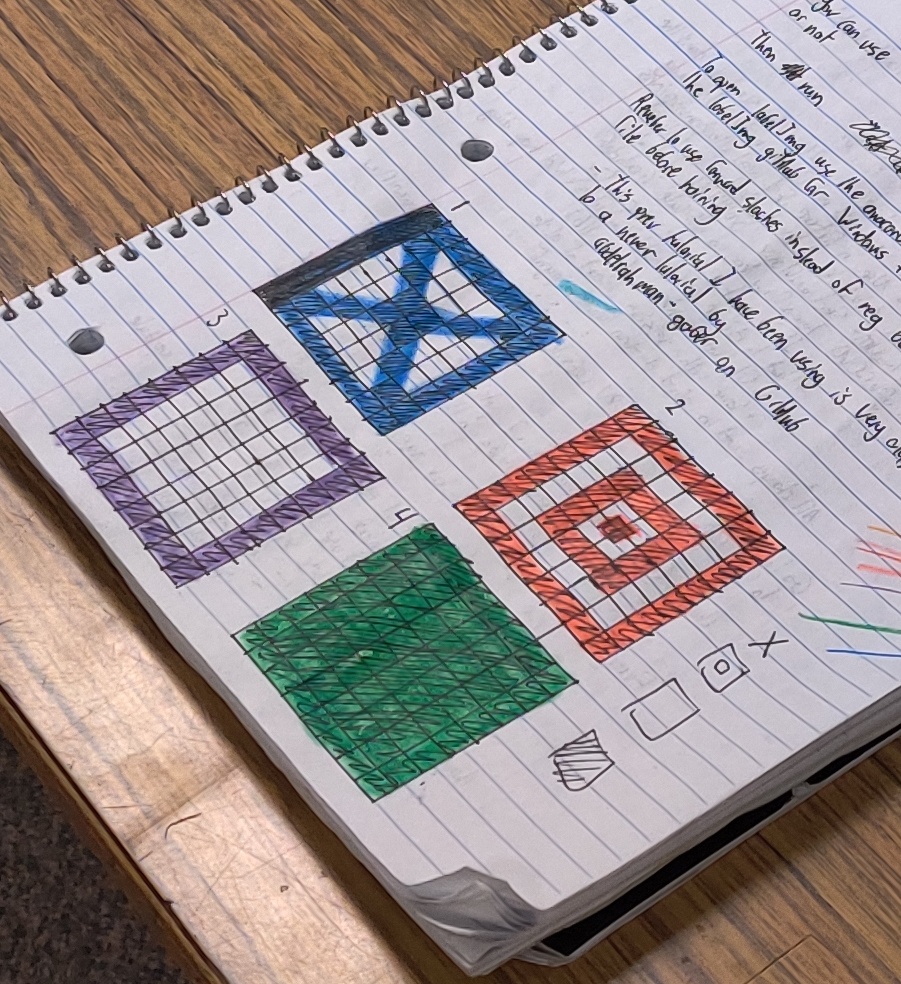 You can use
or not
Then run
To open labelImg use the anaconda
the labelImg github for Windows
Remember to use forward slaches instead of reg
file before training
- This prev tutorial I have been using is very
to a newer tutorial by
on GitHub
1
2
3
4
X